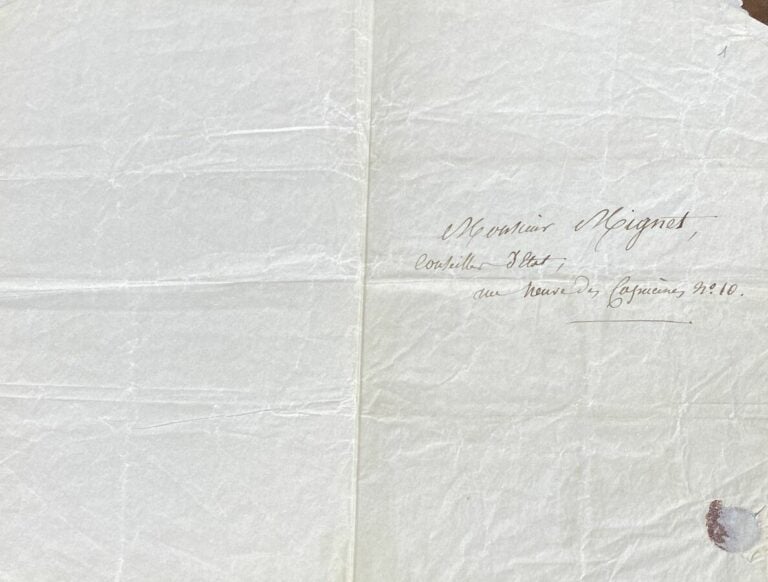 1
Monsieur Mignet,
Conseiller d'Etat,
rue neuve des Capucines No 10.